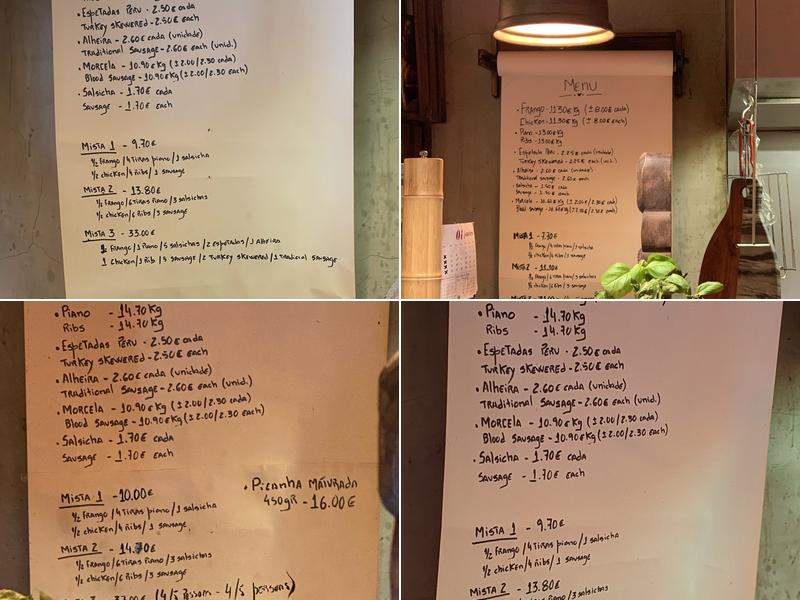 • Espetadas Peru - 2.50€ cada
Turkey skewered - 2.50€ each
• Alheira - 2.60€ cada (unidade)
Traditional Sausage - 2.60€ each (unid.)
• Morcela - 10.90€ Kg (±2.00/2.30 cada)
Blood Sausage - 10.90€ Kg (±2.00/2.30 each)
• Salsicha - 1.70€ cada
Sausage - 1.70€ each
Mista 1 - 9.70€
½ Frango/4 Tiras piano/1 salsicha
½ chicken/4 Ribs/1 sausage
Mista 2 - 13.80€
½ Frango/6 Tiras Piano/3 salsichas
½ chicken/6 Ribs/3 sausage
Mista 3 - 33.00€
1 Frango/1 Piano/5 salsichas/2 espetadas/1 Alheira
1 chicken/1 Rib/5 Sausage/2 Turkey skewered/1 Tradicial Sausage
Menu
• Frango - 11.30€ Kg (± 8.00€ cada)
Chicken - 11.30€ Kg (± 8.00€ each)
• Piano - 13.00€ Kg
Ribs - 13.00€ Kg
• Espetada Peru - 2.25€ cada (unidade)
Turkey skewered - 2.25€ each
• Alheira - 2.60€ cada (unidade)
Traditional sausage - 2.60€ each
• Salsicha - 1.50€ cada
Sausage - 1.50€ each
• Morcela - 10.60€ Kg
Blood Sausage - 10.60€ Kg
Mista 1 - 7.70€
½ Frango/4 Tiras piano/1 salsicha
½ chicken/4 Ribs/1 sausage
Mista 2 - 11.90€
½ chicken/6 Ribs/3 sausage
01
• Piano - 14.70 Kg
Ribs - 14.70 Kg
• Espetadas Peru - 2.50€ cada
Turkey skewered - 2.50€ each
• Alheira - 2.60€ cada (unidade)
Traditional Sausage - 2.60€ each (unid.)
• Morcela - 10.90€ Kg (±2.00/2.30 cada)
Blood Sausage - 10.90€ Kg (±2.00/2.30 each)
• Salsicha - 1.70€ cada
Sausage - 1.70€ each
• Picanha Maturada
450gr - 16.00€
Mista 1 - 10.00€
½ Frango/4 Tiras piano/1 salsicha
½ chicken/4 Ribs/1 sausage
Mista 2 - 14.70€
½ Frango/6 Tiras Piano/3 salsichas
½ chicken/6 Ribs/3 sausage
(4/5 Pessoas - 4/5 persons)
• Piano - 14.70 Kg
Ribs - 14.70 Kg
• Espetadas Peru - 2.50€ cada
Turkey skewered - 2.50€ each
• Alheira - 2.60€ cada (unidade)
Traditional Sausage - 2.60€ each (unid.)
• Morcela - 10.90€ Kg (±2.00/2.30 cada)
Blood Sausage - 10.90€ Kg (±2.00/2.30 each)
• Salsicha - 1.70€ cada
Sausage - 1.70€ each
Mista 1 - 9.70€
½ Frango/4 Tiras piano/1 salsicha
½ chicken/4 Ribs/1 sausage
Mista 2 - 13.80€
½ Frango/6 Tiras Piano/3 salsichas